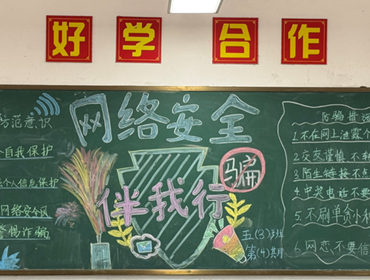 好学合作
网络安全
伴我行
骗
五(3)班
防范意识
自我保护
个人信息保护
网络安全风
警惕诈骗
1.不在网上泄露个
2.交友谨慎 不轻
3.陌生链接不点
4.中奖电话不要
5.不刷单贪小利
6.网恋,不要信